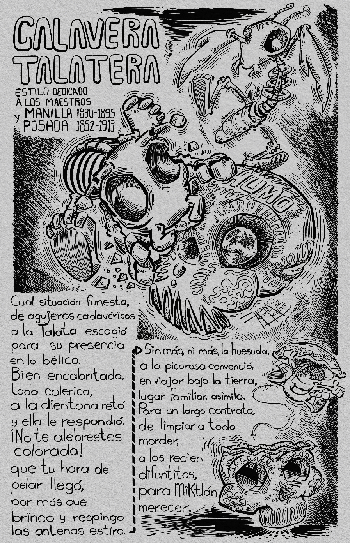 CALAVERA
TALATERA
ESTILO DEDICADO
A LOS MAESTROS
y MANILLA 1830-1895
POSADA 1852-1913
HOMO
Cual situación funesta,
de agujeros cadavéricos
a la Talata escapó
para su presencia
en lo bélico.
Bien encabritada,
toda colérica,
a la dientona retó
y ella le respondió.
¡No te alebrestes
colorada!
que tu hora de
llegó,
por más que
brinco y respingo
las antenas estiro.
Sin más, ni más, la huesuda,
a la picarosa convenció
en viajar bajo la tierra,
lugar familiar asimila.
Para un largo contrato,
de limpiar a todo
morder,
a los recien
difuntitos,
para Miktlán
merecer.